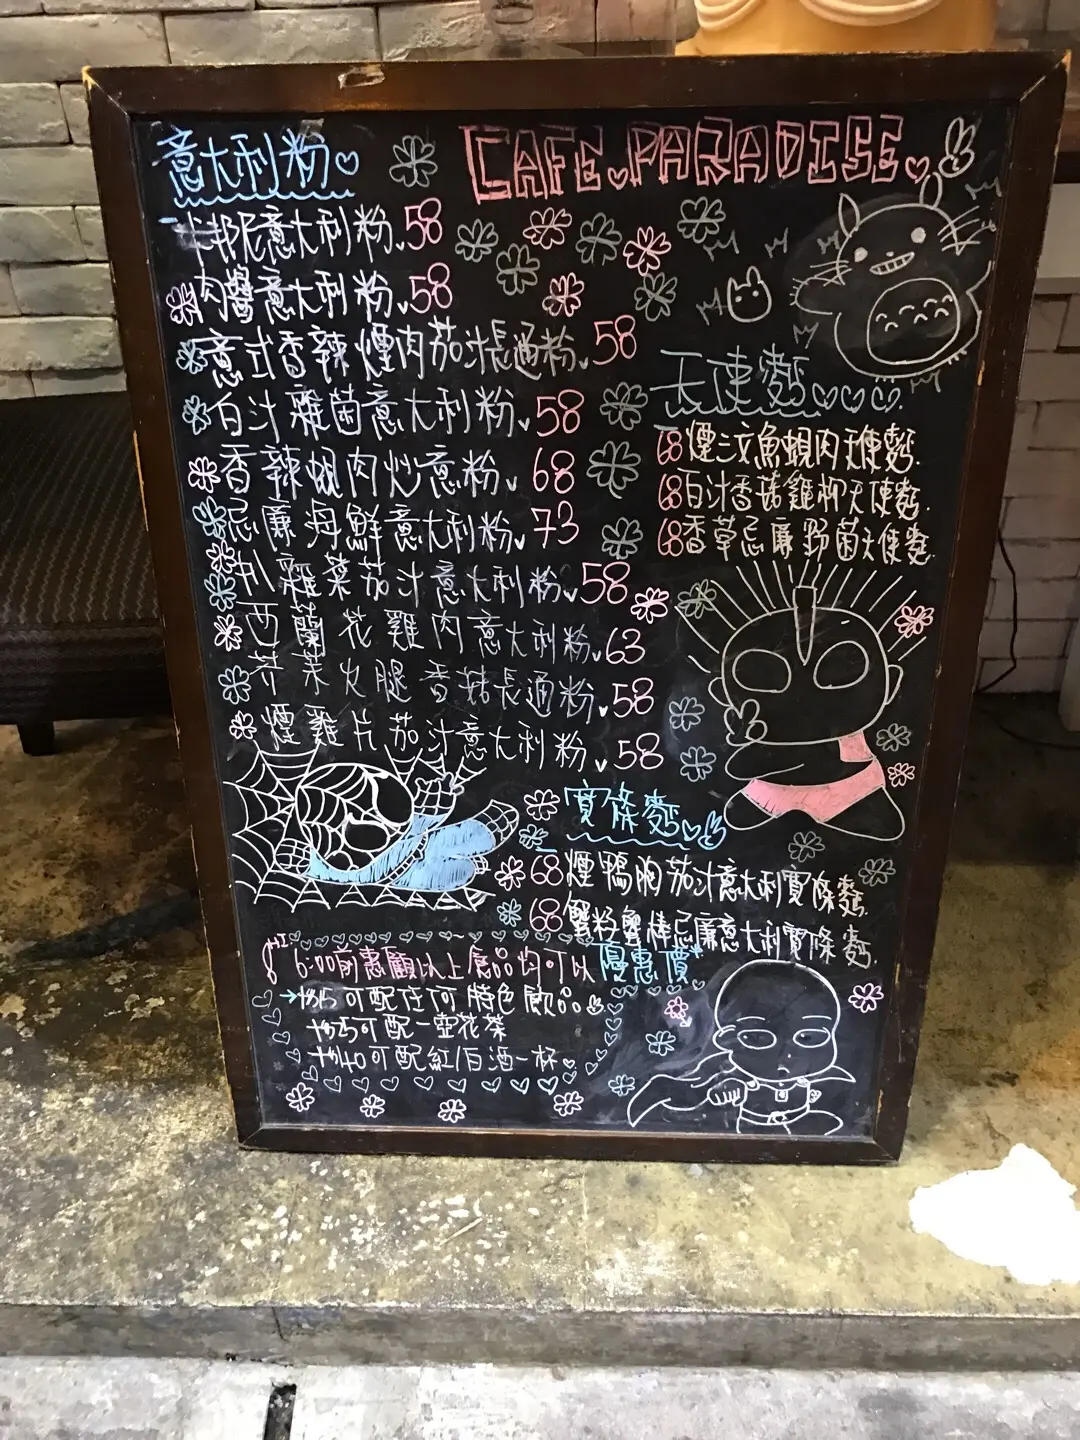 意大利粉
CAFE PARADISE
卡邦尼意大利粉 58
肉醬意大利粉 58
意式香辣煙肉茄汁長通粉 58
白汁雜菌意大利粉 58
香辣蜆肉炒意粉 68
忌廉海鮮意大利粉 73
扒雜菜茄汁意大利粉 58
西蘭花雞肉意大利粉 63
芥茉火腿香菇長通粉 58
煙雞片茄汁意大利粉 58
天使麵
68 煙三文魚蜆肉天使麵
68 白汁香菇雞柳天使麵
68 香草忌廉野菌天使麵
寬條麵
68 煙鴨胸茄汁意大利寬條麵
68 蟹籽蟹棒忌廉意大利寬條麵
6:00前惠顧以上食品均可以優惠價
→ +$15可配任何特色飲品
+$25可配一壺花茶
+$40可配紅/白酒一杯